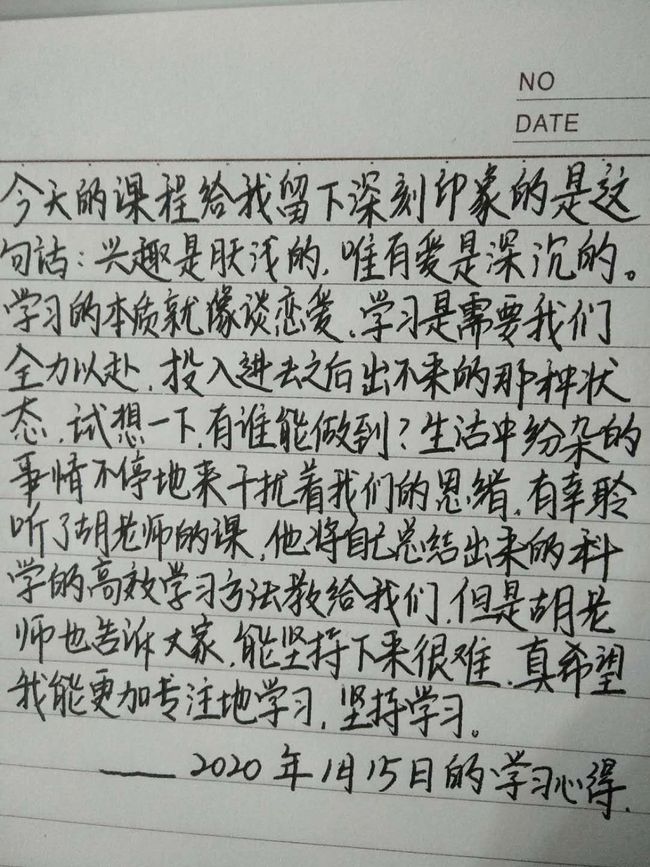 NO
DATE
今天的课程给我留下深刻印象的是这
句话：兴趣是肤浅的，唯有爱是深沉的。
学习的本质就像谈恋爱，学习是需要我们
全力以赴，投入进去之后出不来的那种状
态，试想一下，有谁能做到？生活中纷杂的
事情不停地来干扰着我们的思绪，有幸聆
听了胡老师的课，他将自己总结出来的科
学的高效学习方法教给我们，但是胡老
师也告诉大家，能坚持下来很难，真希望
我能更加专注地学习，坚持学习。
——2020年1月15日的学习心得.